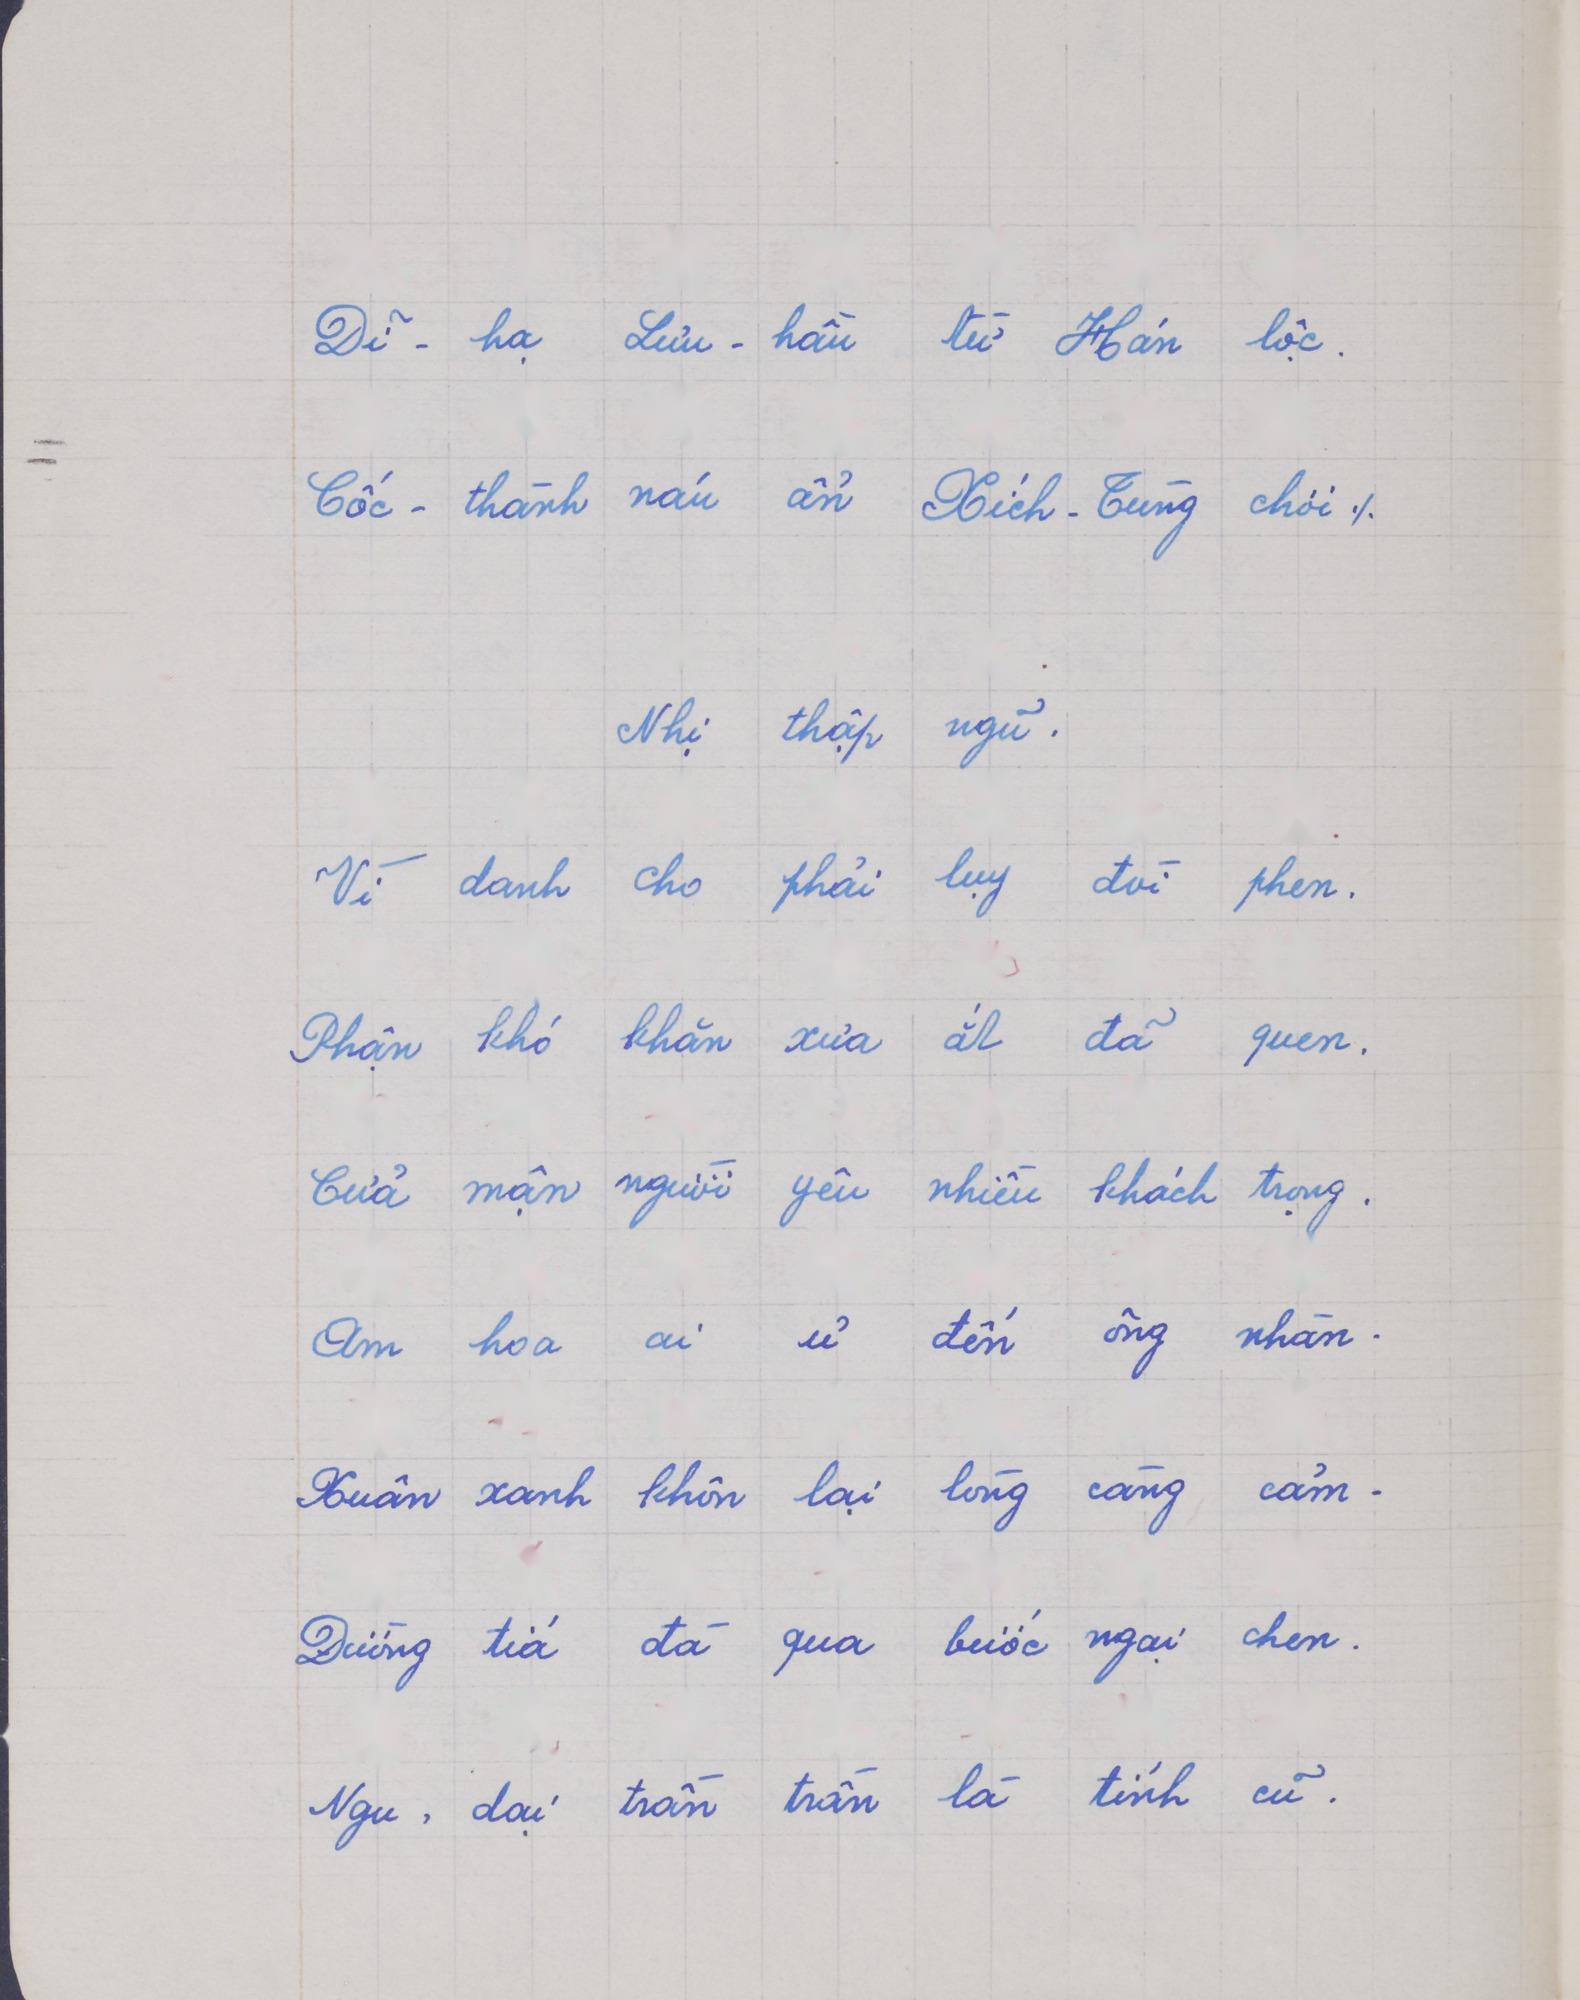 Dĩ - hạ Lưu - hầu từ Hán lộc.
Cốc - thành náu ẩn Xích - Tùng chơi ./.
Nhị thập ngũ.
Vì danh cho phải lụy đòi phen.
Phận khó khăn xưa ắt đã quen.
Cửa mận người yêu nhiều khách trọng.
Am hoa ai ủ đến ông nhàn.
Xuân xanh khôn lại lòng càng cảm.
Đường tía đà qua bước ngại chen.
Ngu, dại trần trần là tính cũ.